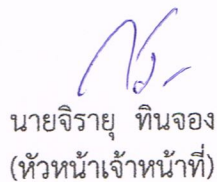 นายจิรายุ ทินจอง
(หัวหน้าเจ้าหน้าที่)